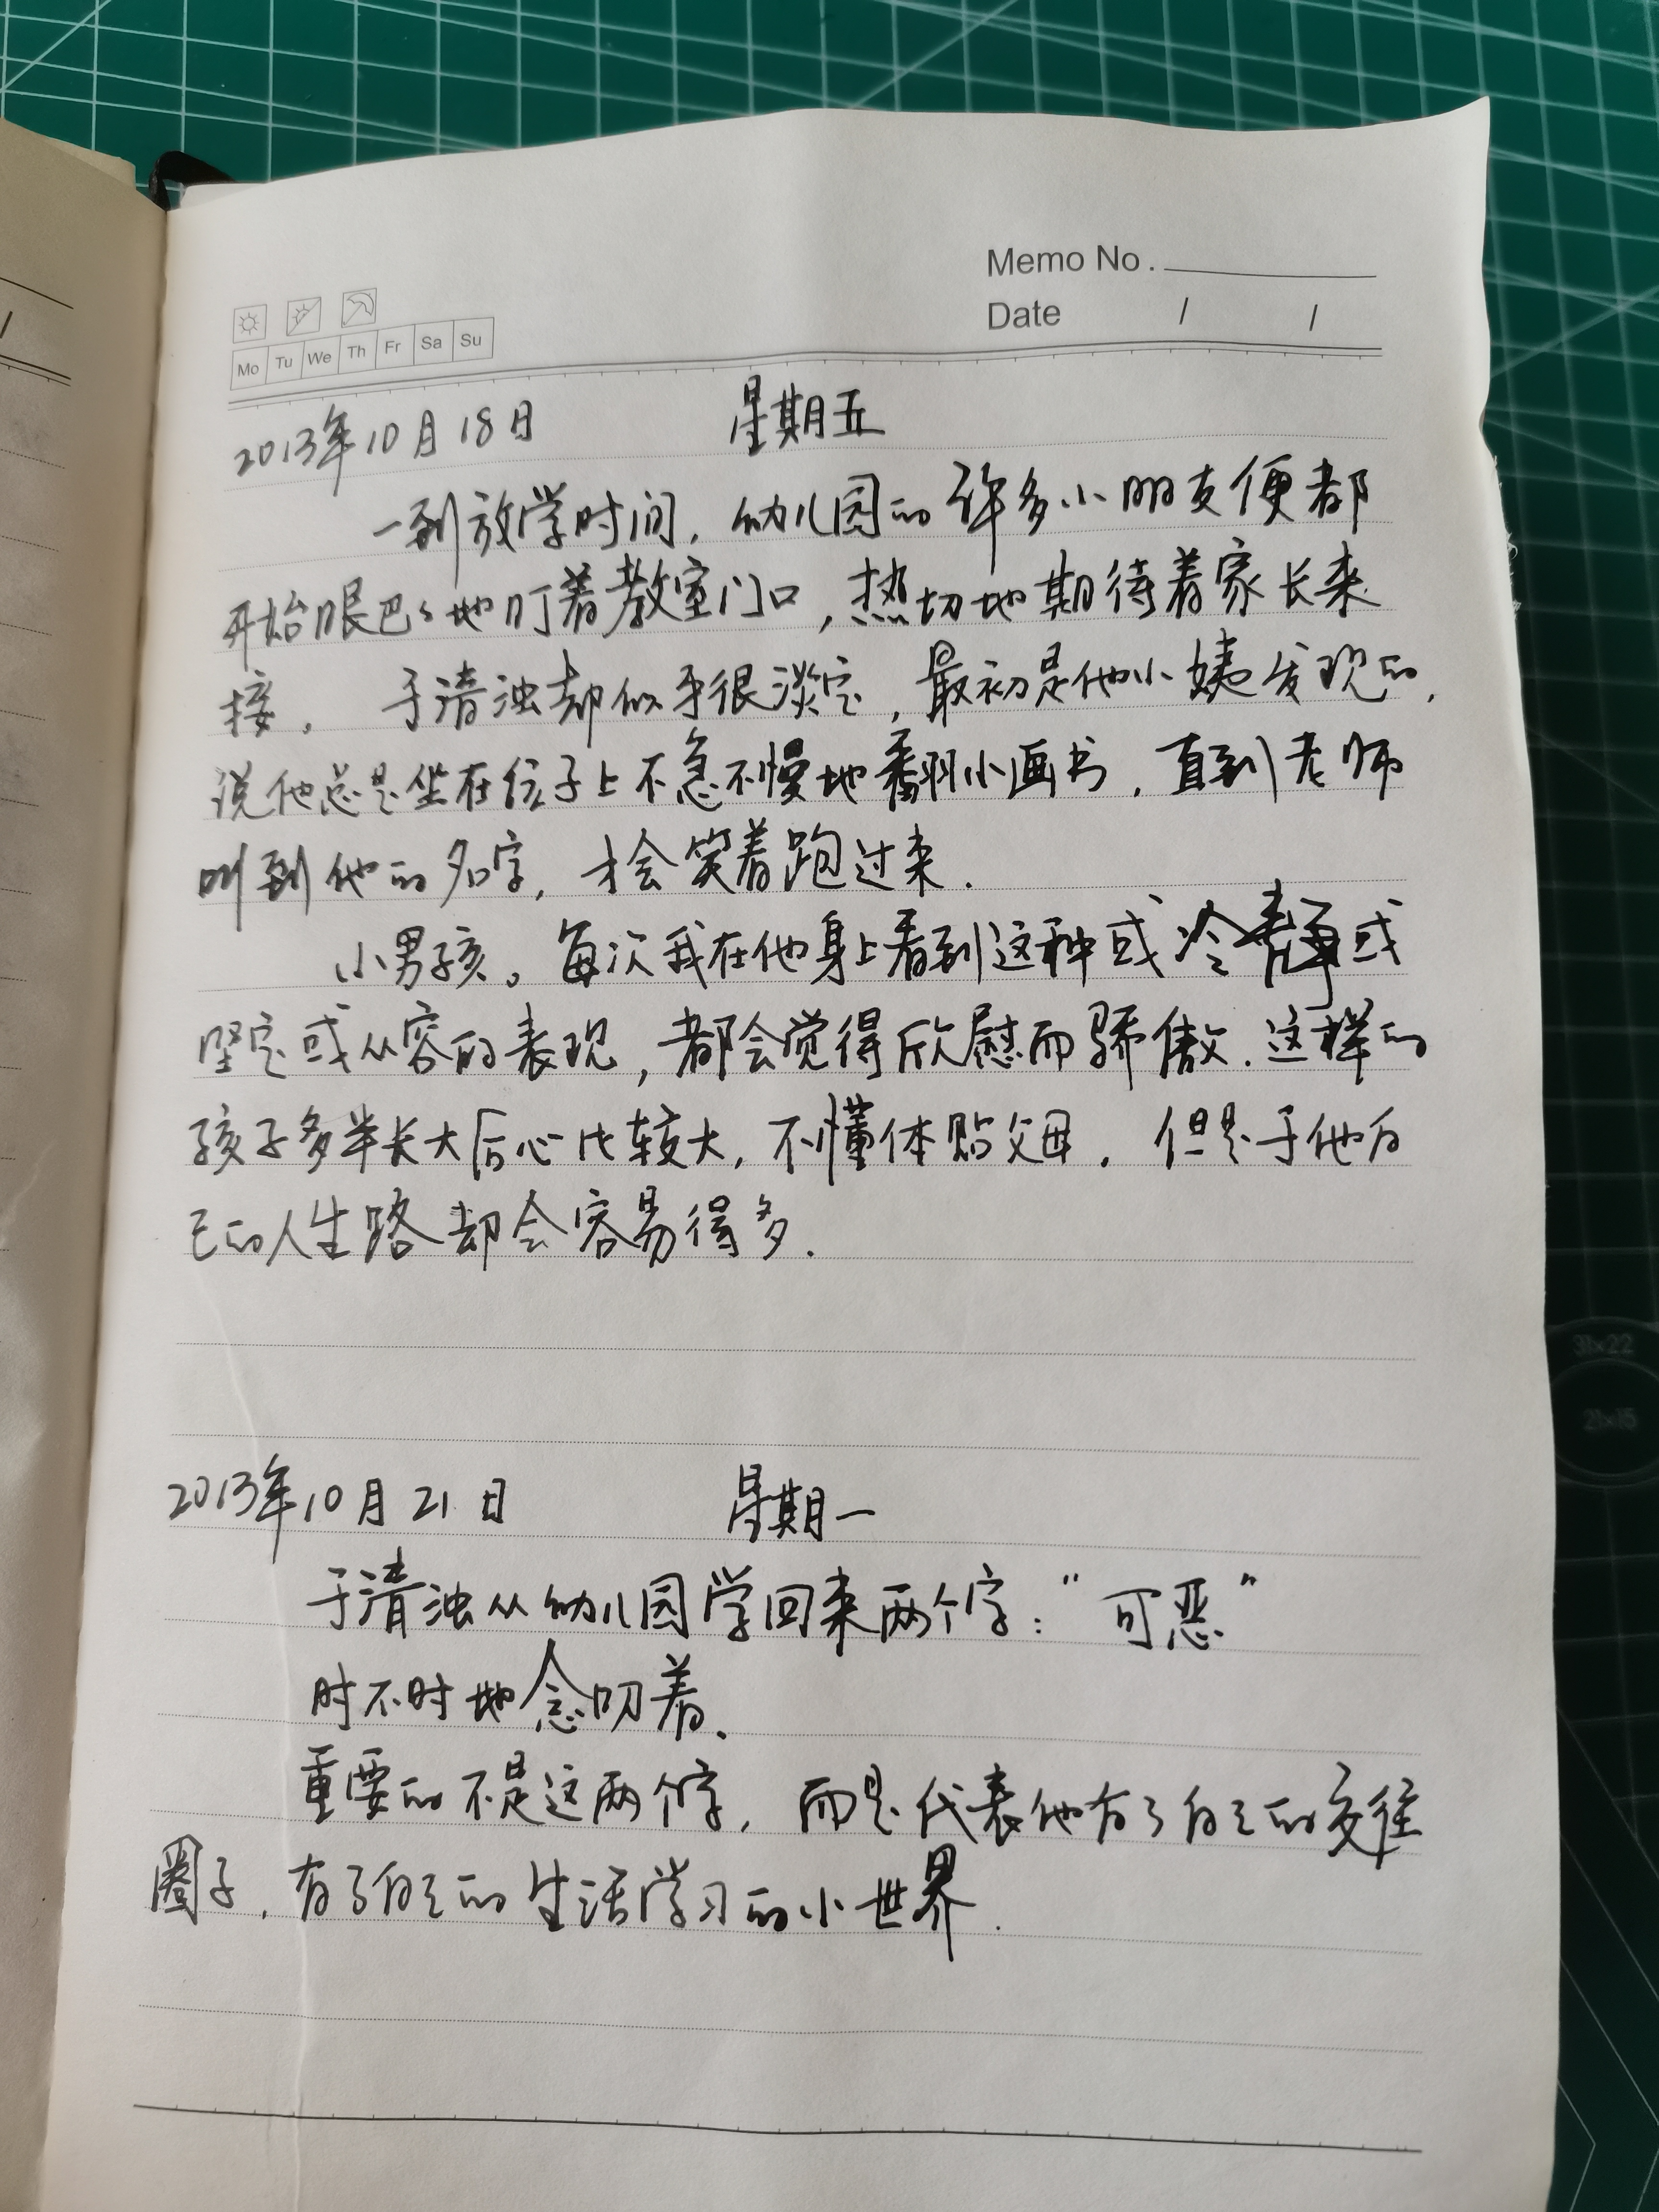 Memo No.
Date / /
Mo Tu We Th Fr Sa Su
2013年10月18日 星期五
一到放学时间，幼儿园的许多小朋友便都
开始眼巴巴地盯着教室门口，热切地期待着家长来
接。于清浊却似乎很淡定，最初是他小姨发现的，
说他总是坐在位子上不急不慢地翻小画书，直到老师
叫到他的名字，才会笑着跑过来.
小男孩。每次我在他身上看到这种或冷静或
坚定或从容的表现，都会觉得欣慰而骄傲.这样的
孩子多半长大后心比较大，不懂体贴父母. 但是于他自
己的人生路却会容易得多.
2013年10月21日 星期一
于清浊从幼儿园学回来两个字："可恶"
时不时地念叨着.
重要的不是这两个字，而是代表他有了自己的交往
圈子，有了自己的生活学习的小世界.
33×22
21×15